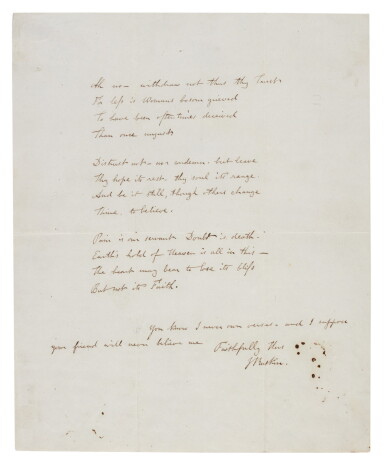 Ah no – withdraw not thus thy trust
The less is Womans bosom grieved
To have been often times deceived
Than once unjust.
Distrust not – nor condemn – but leave
Thy hope its rest, thy soul its range
And be it still, though others change
Thine to believe.
Pain is our servant Doubt is death –
Earth's hold of Heaven is all in this –
The heart may bear to lose its bliss
But not its Faith.
You know I never own verses – and I suppose
your friend will never believe me Faithfully Yours
J Ruskin.